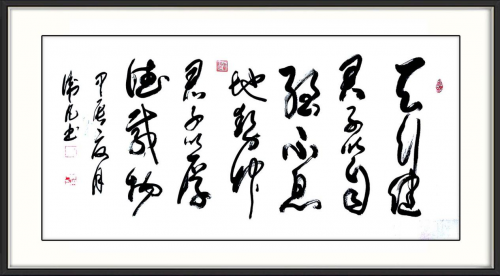 天行健
君子以自
强不息
地势坤
君子以厚
德载物
甲辰夏月
书